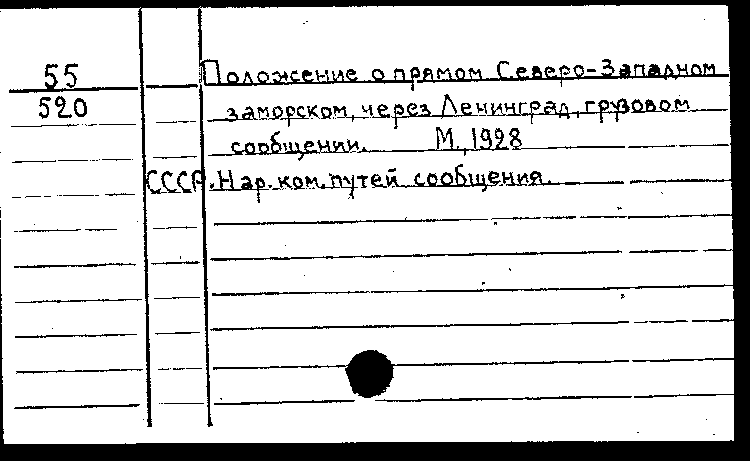 55 Положение о прямом Северо-Западном
520 заморском, через Ленинград, грузовом
сообщении. М., 1928
СССР. Нар. ком. путей сообщения.